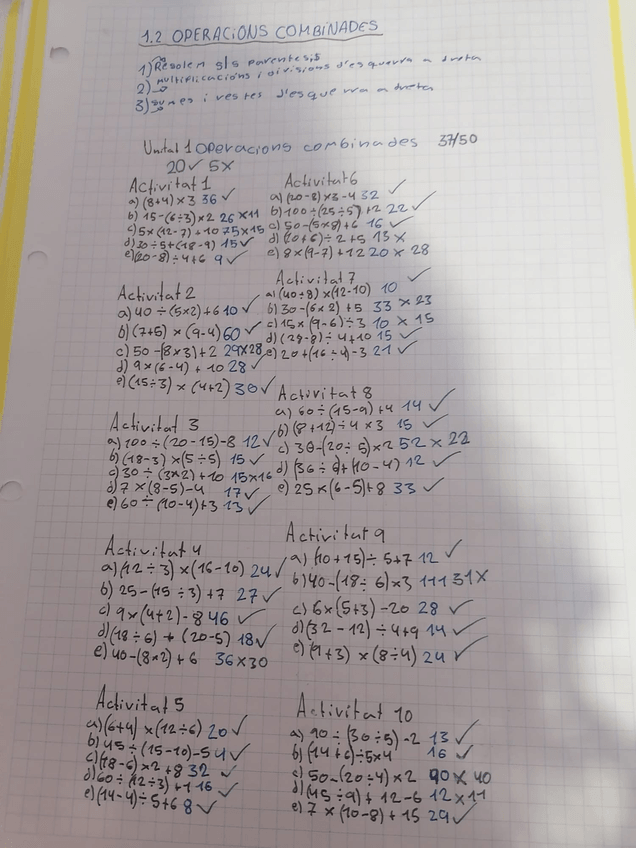 1.2 OPERACIONS COMBINADES
1) Resolem els parentesis
2) multiplicacions i divisions d'esquerra a dreta
3) sumes i restes d'esquerra a dreta
Unitat 1 Operacions combinades 37/50
20✓ 5×
Activitat 1
a) (8+4) ×3 36 ✓
b) 15-(6÷3)×2 26 ×11
c) 5×(12-7)+10 75×15
d) 30÷5+(18-9) 15✓
e) (20-8)÷4+6 9✓
Activitat 2
a) 40÷(5×2)+6 10 ✓
b) (7+5) × (9-4) 60 ✓
c) 50-(8×3)+2 29×28
d) 9×(6-4) + 10 28 ✓
e) (15÷3) × (4+2) 30 ✓
Activitat 3
a) 100÷(20-15)-8 12 ✓
b) (18-3) ×(5÷5) 15 ✓
c) 30÷(3×2)+10 15×16
d) 7×(8-5)-4 17 ✓
e) 60÷(10-4)+3 13 ✓
Activitat 4
a) (12÷3) ×(16-10) 24 ✓
b) 25-(15÷3)+7 27 ✓
c) 9×(4+2)-8 46 ✓
d) (18÷6) + (20-5) 18 ✓
e) 40-(8×2)+6 36×30
Activitat 5
a) (6+4) ×(12÷6) 20 ✓
b) 45÷(15-10)-5 4 ✓
c) (18-6)×2+8 32 ✓
d) 60÷(12÷3)+1 16 ✓
e) (14-4)÷5+6 8 ✓
Activitat 6
a) (20-8)×3-4 32 ✓
b) 100÷(25÷5)+2 22 ✓
c) 50-(5×8)+6 16 ✓
d) (10+6)÷2+5 13 ×
e) 8×(9-7)+12 20 × 28
Activitat 7
a) (40÷8) ×(12-10) 10 ✓
b) 30-(6×2)+5 33 × 23
c) 15×(9-6)÷3 10 × 15
d) (28-8)÷4+10 15 ✓
e) 20+(16÷4)-3 21 ✓
Activitat 8
a) 60÷(15-9)+4 14 ✓
b) (8+12)÷4×3 15 ✓
c) 30-(20÷5)×2 52 × 22
d) (36÷6)+(10-4) 12 ✓
e) 25×(6-5)+8 33 ✓
Activitat 9
a) (10+15)÷5+7 12 ✓
b) 40-(18÷6)×3 111 31×
c) 6×(5+3)-20 28 ✓
d) (32-12)÷4+9 14 ✓
e) (9+3) ×(8÷4) 24 ✓
Activitat 10
a) 90÷(30÷5)-2 13 ✓
b) (14+6)÷5×4 16 ✓
c) 50-(20÷4)×2 90 × 40
d) (45÷9)+12-6 12 × 11
e) 7×(10-8)+15 29 ✓